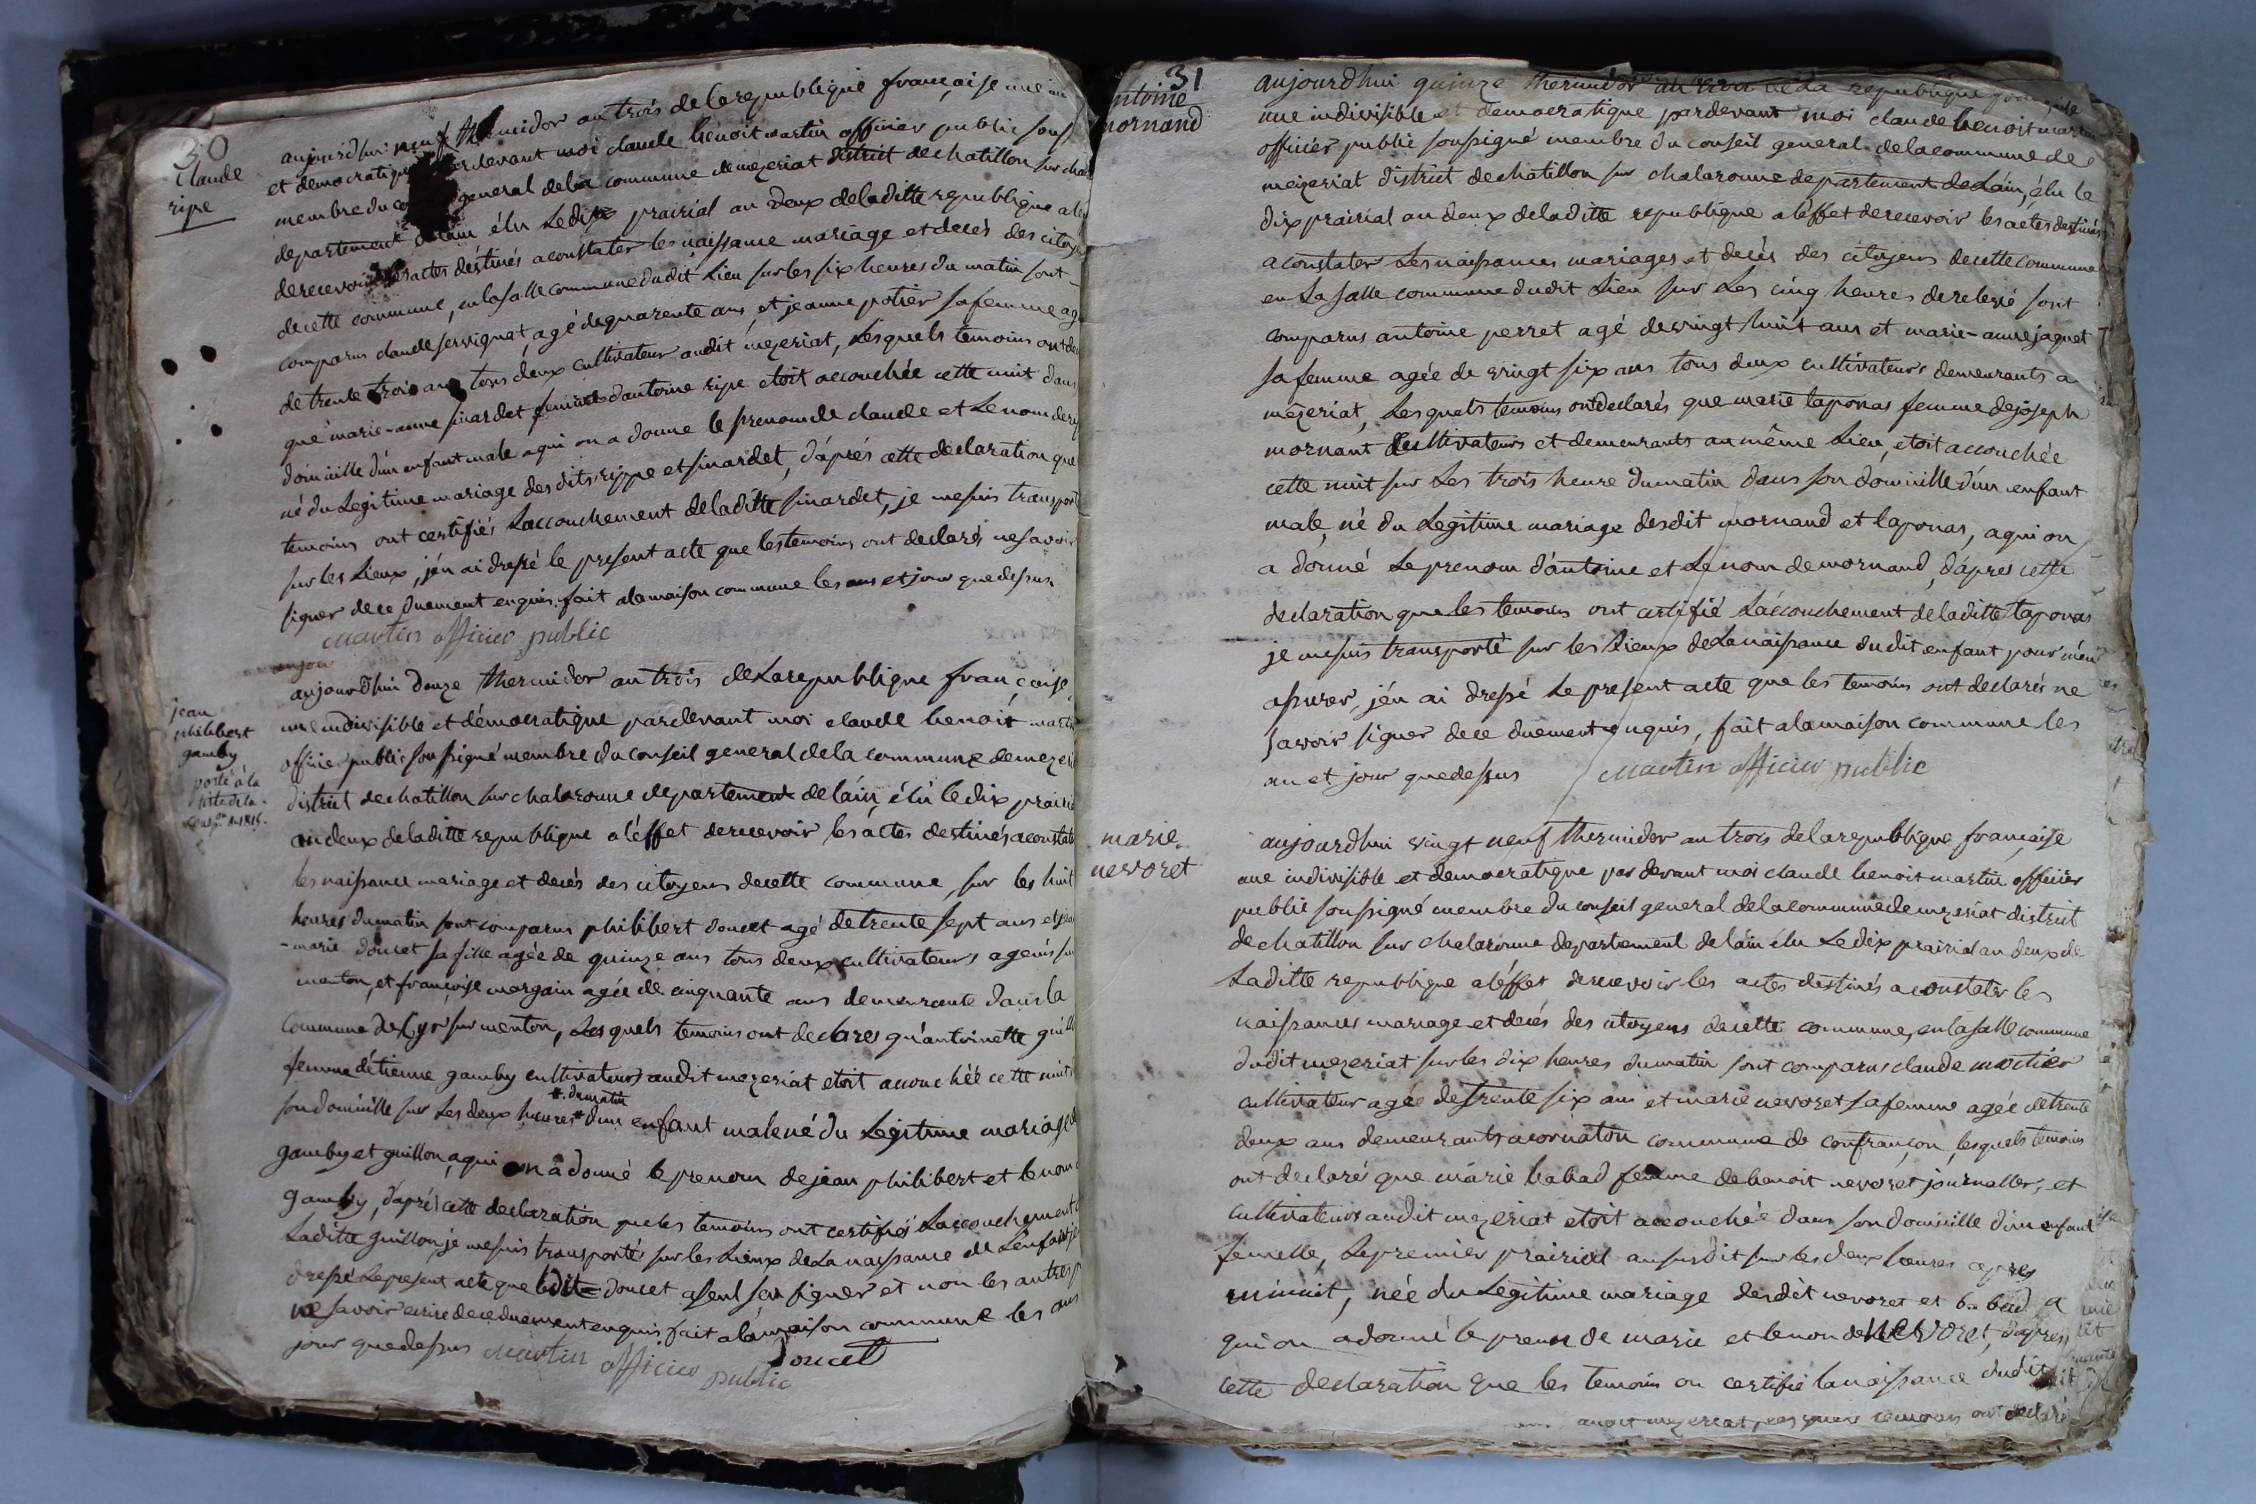 30
Claude
ripe
aujourd'hui neuf thermidor an trois de la republique française une in
et democratique pardevant moi claude benoit martin officier public souss
membre du conseil general de la commune de mezeriat district de chatillon sur chal
departement de l'ain élu le dix prairial an deux de laditte republique a l'e
de recevoir les actes déstinés a constater les naissance mariage et decés des citoye
de cette commune, en la salle commune dudit Lieu sur les six heures du matin sont
comparus claude servignat, agé de quarente ans, et jeanne potier sa femme ag
de trente trois ans tous deux cultivateur audit mezeriat, Lesquels temoins ont de
que marie-anne sinardet femme d'antoine ripe etoit accouchée cette nuit dans
domicille d'un enfant male a qui on a donne le prenom de claude et Le nom de ri
né du Legitime mariage des dits rippe et sinardet, d'aprés cette déclaration que
temoins ont certifiés Laccouchement de laditte sinardet, je me suis transport
sur les Lieux, j'en ai dressé le present acte que les temoins ont declarés ne savoir
signer de ce duement enquis. fait a la maison commune les ans et jour que dessus.
Martin officier public
aujou
jean
philibert
gamby
porté à la
liste de la
aujourd'hui douze thermidor an trois de La republique française
une indivisible et démocratique pardevant moi claude benoit marti
officier public soussigné membre du conseil general de la commune de mezeri
district de chatillon sur chalaronne departement de l'ain, élu le dix prairi
an deux de laditte republique a l'éffet de recevoir les actes destinés a constate
les naissance mariage et decés des citoyens de cette commune, sur les huit
heures du matin sont comparus philibert doucet agé de trente sept ans et jea
-marie doucet sa fille agée de quinze ans tous deux cultivateurs a genis su
menton, et françoise morgain agée de cinquante ans demeurante dans la
commune de Cyr sur menton, Lesquels temoins ont declares qu'antoinette guill
femme d'étienne gamby cultivateurs audit mezeriat etoit accouchée cette nuit
#. du matin
son domicille sur Les deux heures # d'un enfant male né du Legitime mariage d
gamby et guillon, a qui on a donné le prenom de jean philibert et le nom
Gamby, d'aprés cette declaration que les temoins ont certifiés Laccouchement
Laditte guillon, je me suis transporté sur les Lieux de La naissance de L'enfant j'e
dressé Le present acte que ledit doucet a seul seu signer et non les autres
ne savoir ecrire de ce duement enquis, fait a la maison commune les ans
jour que dessus Martin officier public
Doucet
31
ntoine
mornand
aujourd'hui quinze thermidor an trois de la republique française
une indivisible et democratique pardevant moi claude benoit martin
officier public soussigné membre du conseil general de la commune de
mezeriat district de chatillon sur chalaronne departement de L'ain, élu le
dix prairial an deux de laditte republique a l'éffet de recevoir les actes destinés
a constater Les naissances mariages et decés des citoyens de cette commune
en La salle commune dudit Lieu sur Les cinq heures de relevé sont
comparus antoine perret agé de vingt huit ans et marie-anne jaquet
sa femme agée de vingt six ans tous deux cultivateurs demeurants a
mezeriat, Lesquels temoins ont declarés que marie laponas femme de joseph
mornant Cultivateurs et demeurants au même Lieu, etoit accouchée
cette nuit sur Les trois heure du matin dans son domicille d'un enfant
male, né du Legitime mariage desdit mornand et laponas, a qui on
a donné Le prenom d'antoine et Le nom de mornand, d'apres cette
declaration que les temoins ont certifié L'accouchement de laditte laponas
je me suis transporté sur les Lieux de La naissance dudit enfant pour m'en
assurer, j'en ai dressé Le present acte que les temoins ont declarés ne
savoir signer de ce duement enquis, fait a la maison commune les
an et jour que dessus Martin officier public
marie
nevoret
aujourd'hui vingt neuf thermidor an trois de la republique française
une indivisible et democratique par devant moi claude benoit martin officier
public soussigné membre du conseil general de la commune de mezeriat district
de chatillon sur chalaronne departement de l'ain élu Le dix prairial an deux de
Laditte republique a l'éffet de recevoir les actes destinés a constater les
naissances mariage et decés des citoyens de cette commune, en la salle commune
dudit mezeriat sur les dix heures du matin sont comparus claude mortier
cultivateur agée de trente six ans et marie nevoret sa femme agée de trente
deux ans demeurants a cornaton commune de confrançon, lesquels temoins
ont declarés que marie babad femme de benoit nevoret journallier, et
cultivateurs audit mezeriat etoit accouchée dans son domicille d'un enfant
femelle, Le premier prairial an susdit sur les deux heures apres
minuit, née du Legitime mariage desdit nevoret et babad a
qui on a donné le prenom de marie et le nom de nevoret, d'apres
cette declaration que les temoins on certifié la naissance dudit
audit mezeriat, Lesquels temoins ont declaré